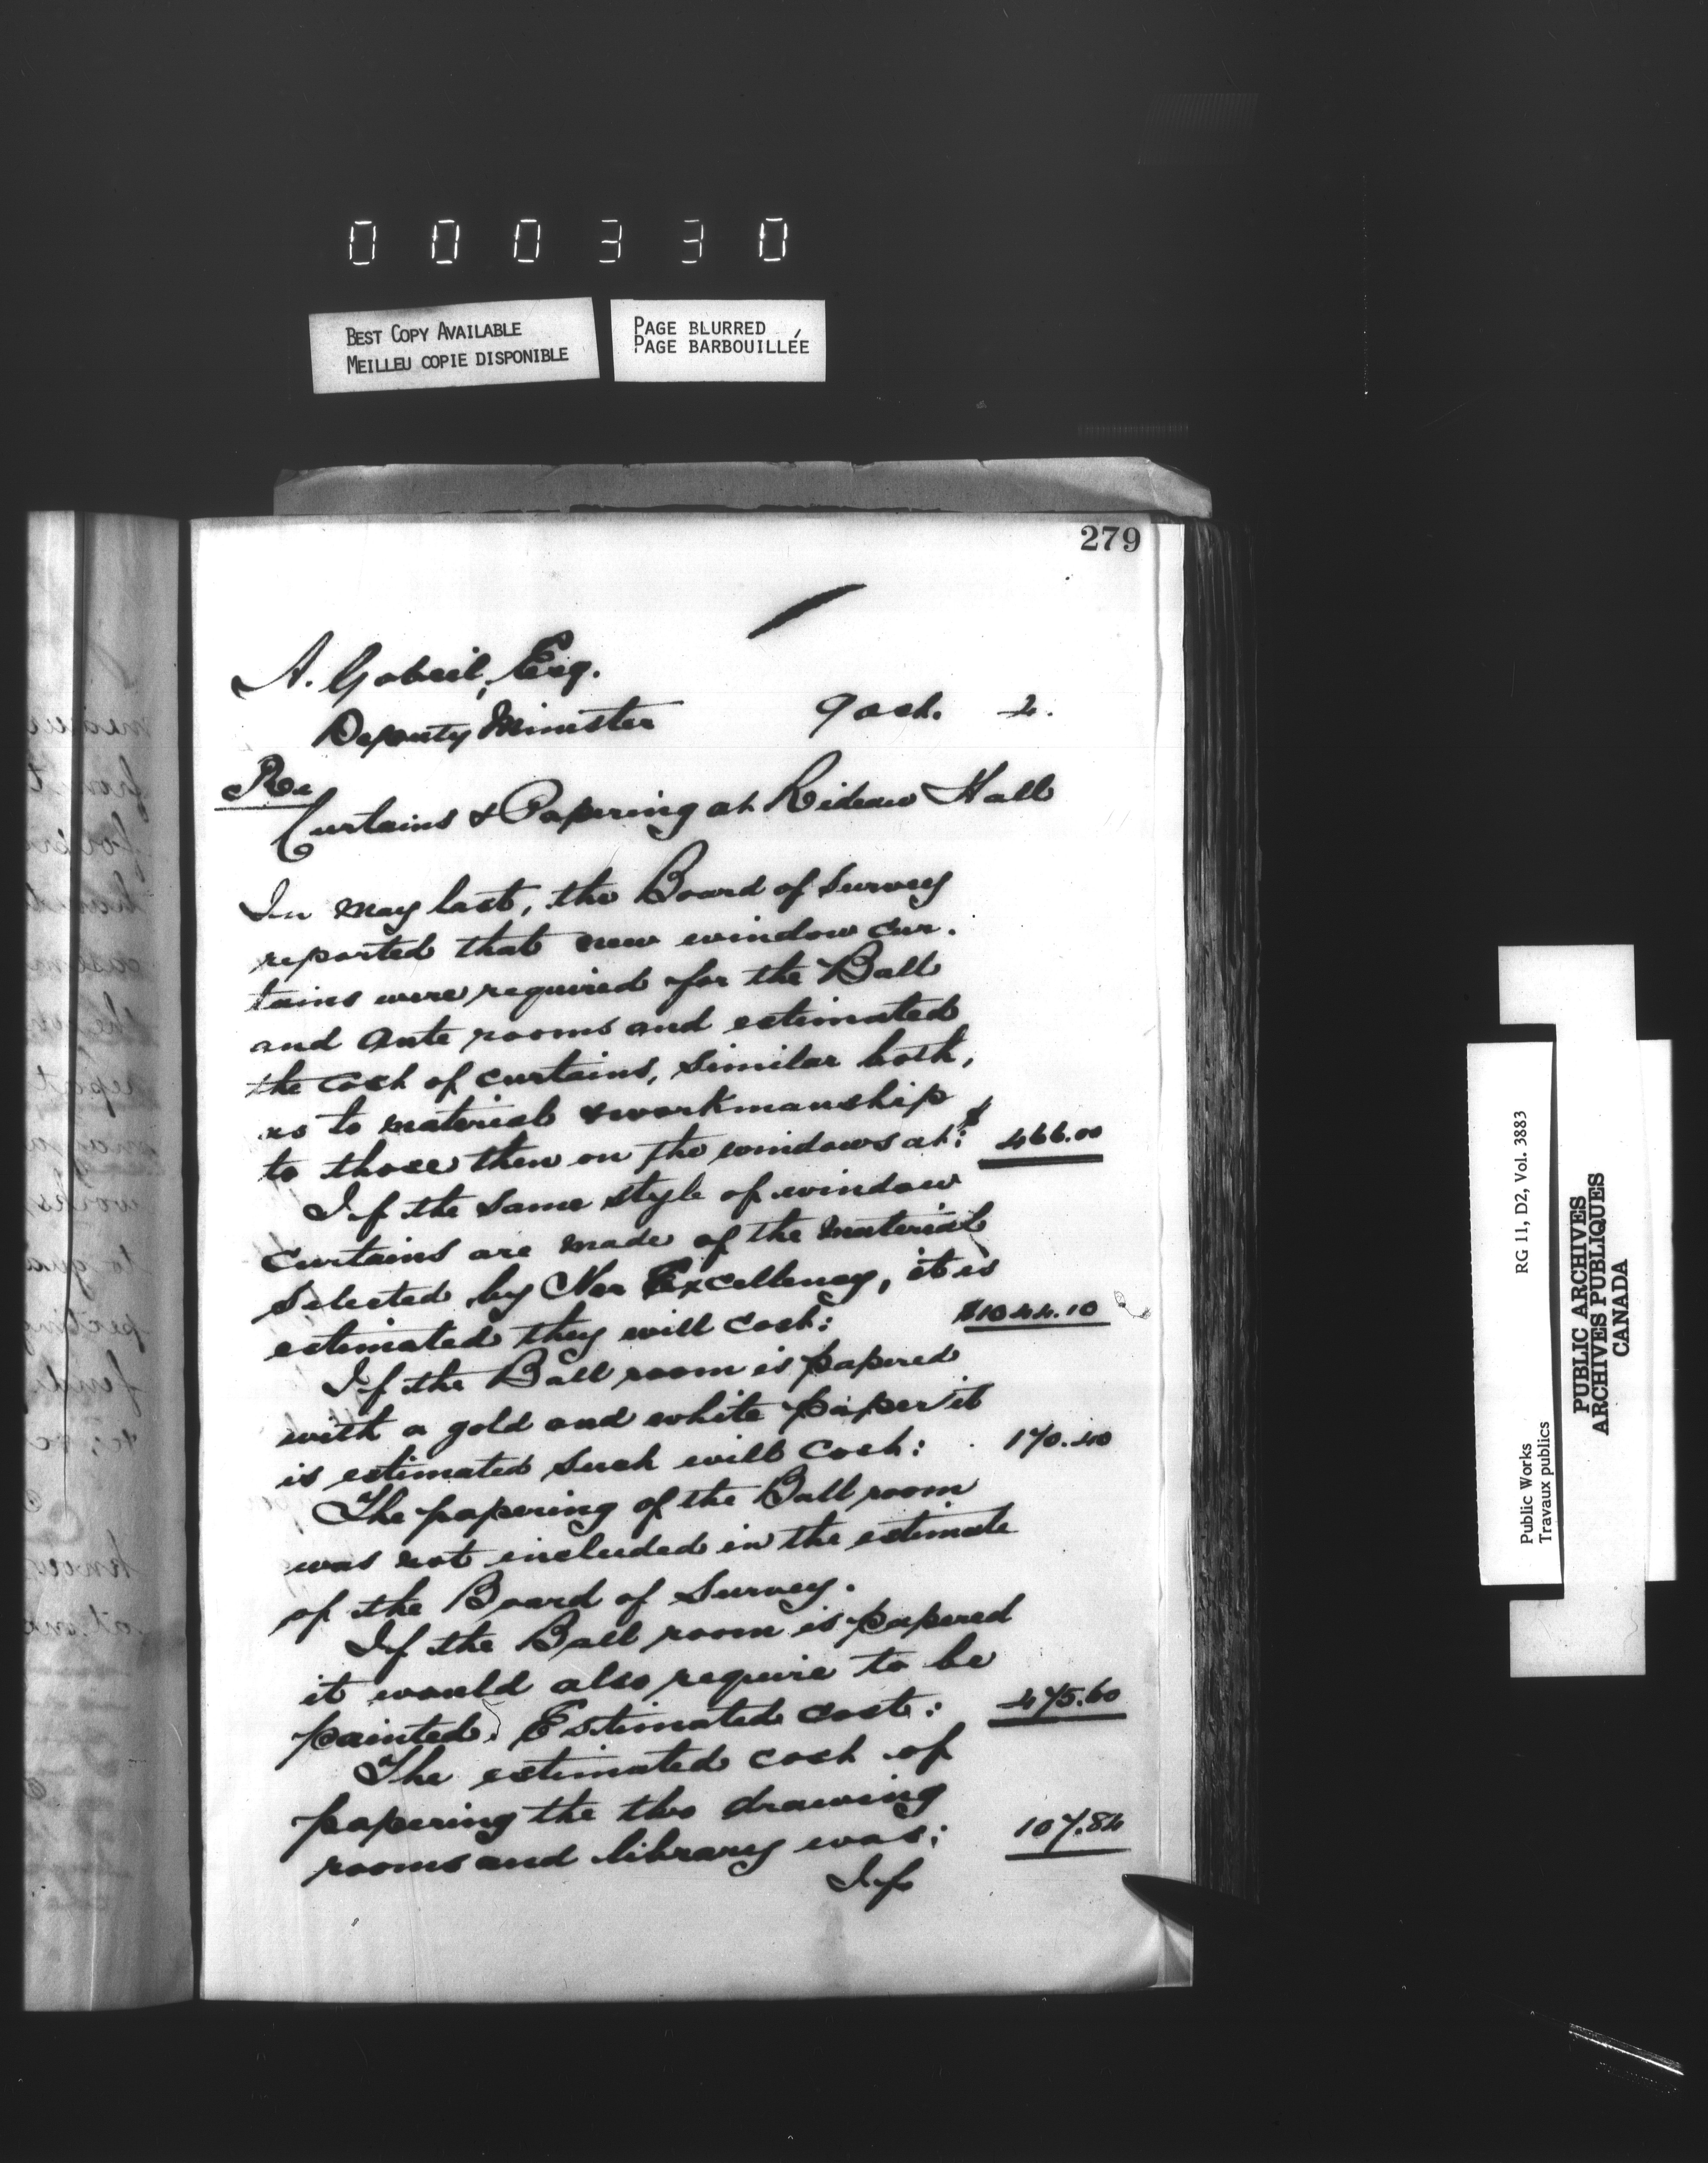 000330
BEST COPY AVAILABLE
MEILLEU COPIE DISPONIBLE
PAGE BLURRED
PAGE BARBOUILLÉE
279
A. Gobeil, Esq.
Deputy Minister
9 Oct. 2.
Re
Curtains & Papering at Rideau Hall
In May last, the Board of Survey
reported that new window cur.
tains were required for the Ball
and Ante rooms and estimated
the cost of curtains, similar both,
as to material & workmanship
to those then on the windows at: $ 466.00
If the same style of window
curtains are made of the material
selected by Her Excellency, it is
estimated they will cost: $1044.10
If the Ball room is papered
with a gold and white paper it
is estimated such will cost: 170.40
The papering of the Ball room
was not included in the estimate
of the Board of Survey.
If the Ball room is papered
it would also require to be
painted. Estimated cost: 475.60
The estimated cost of
papering the two drawing
rooms and library was: 107.84
If
Public Works
Travaux publics
RG 11, D2, Vol. 3883
PUBLIC ARCHIVES
ARCHIVES PUBLIQUES
CANADA